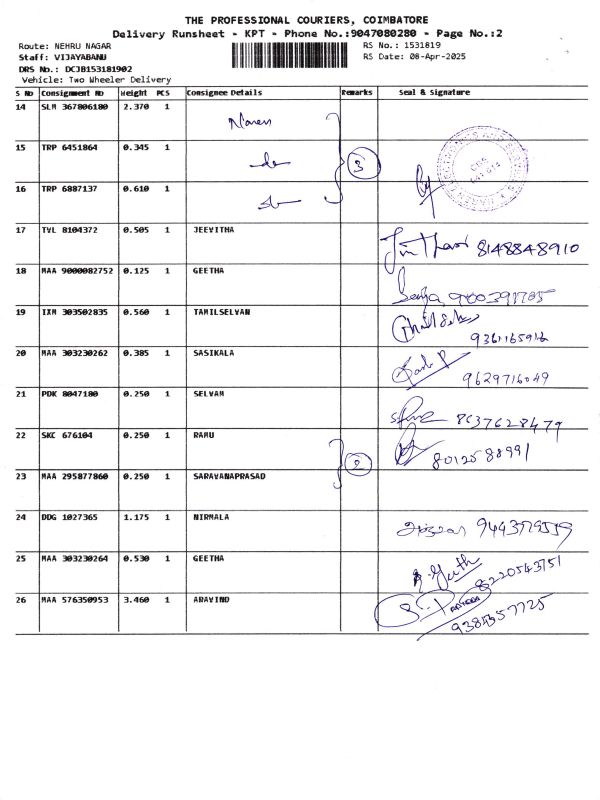 THE PROFESSIONAL COURIERS, COIMBATORE
Delivery Runsheet - KPT - Phone No.:9047080280 - Page No.:2
Route: NEHRU NAGAR RS No.: 1531819
Staff: VIJAYABANU RS Date: 08-Apr-2025
DRS No.: DCJB153181902
Vehicle: Two Wheeler Delivery
S No Consignment No Weight PCS Consignee Details Remarks Seal & Signature
14 SLM 367806180 2.370 1 Naren
15 TRP 6451864 0.345 1 do 3
16 TRP 6887137 0.610 1
17 TVL 8104372 0.505 1 JEEVITHA 8148848910
18 MAA 9000082752 0.125 1 GEETHA
19 IXM 303502835 0.560 1 TAMILSELVAN 9361165916
20 MAA 303230262 0.385 1 SASIKALA 9629716049
21 PDK 8047180 0.250 1 SELVAM 8637628479
22 SKC 676104 0.250 1 RAMU 8012588991
23 MAA 295877860 0.250 1 SARAVANAPRASAD 2
24 DDG 1027365 1.175 1 NIRMALA
25 MAA 303230264 0.530 1 GEETHA 8220543751
26 MAA 576350953 3.460 1 ARAVIND 9384357725